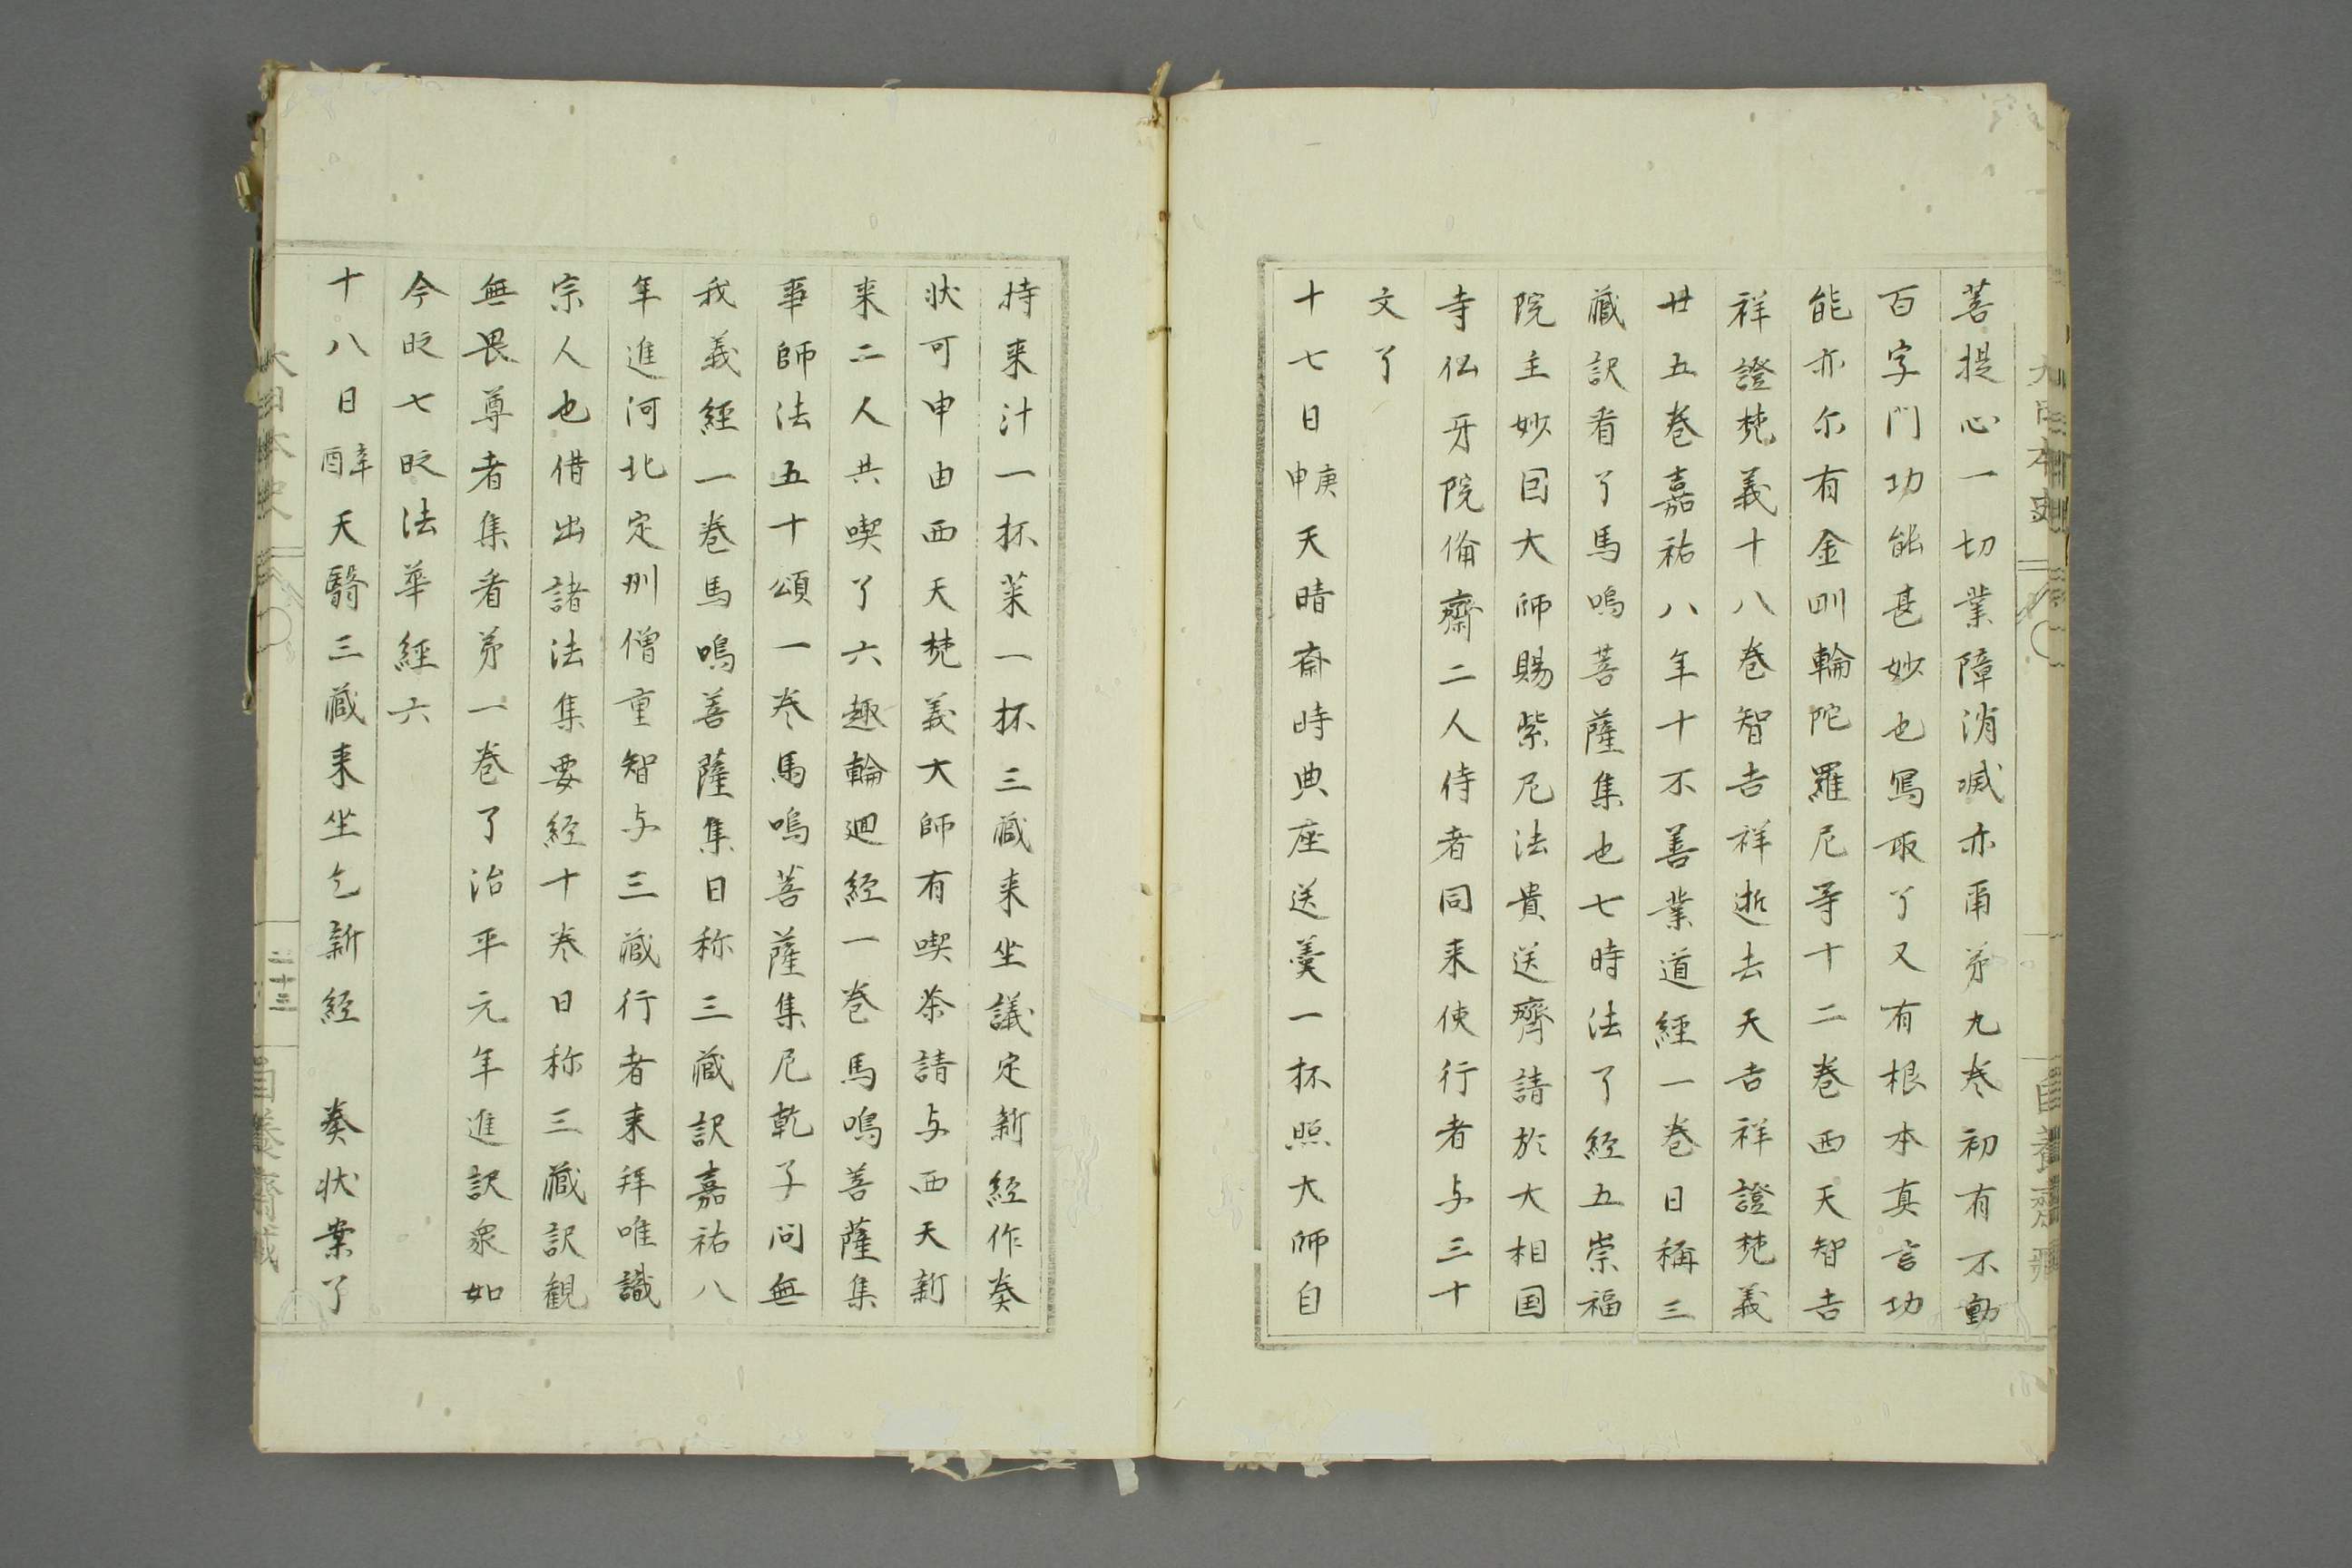 菩提心一切業障消滅亦甭㐧九巻初有不動
百字門功能甚妙也寫取了又有根本真言功
能亦尓有金剛輪陀羅尼等十二巻西天智吉
祥證梵義十八巻智吉祥逝去天吉祥證梵義
廿五巻嘉祐八年十不善業道經一巻日稱三
藏訳看了馬鳴菩薩集也七時法了經五崇福
院主妙囙大師賜紫尼法貴送齊請於大相国
寺仏牙院俻齋二人侍者同来使行者与三十
文了
十七日庚申天晴斎時典座送羹一杯照大師自
持来汁一杯菜一杯三藏来坐議定新經作奏
状可申由西天梵義大師有喫茶請与西天新
来二人共喫了六趣輪廻經一巻馬鳴菩薩集
事師法五十頌一巻馬鳴菩薩集尼乾子问無
我義經一巻馬鳴菩薩集日称三藏訳嘉祐八
年進河北定州僧重智与三藏行者来拜唯識
宗人也借出諸法集要經十巻日称三藏訳観
無畏尊者集看㐧一巻了治平元年進訳衆如
今旼七旼法華經六
十八日辛酉天翳三藏来坐乞新經　奏状案了
大日本史
二十三
自養齋藏